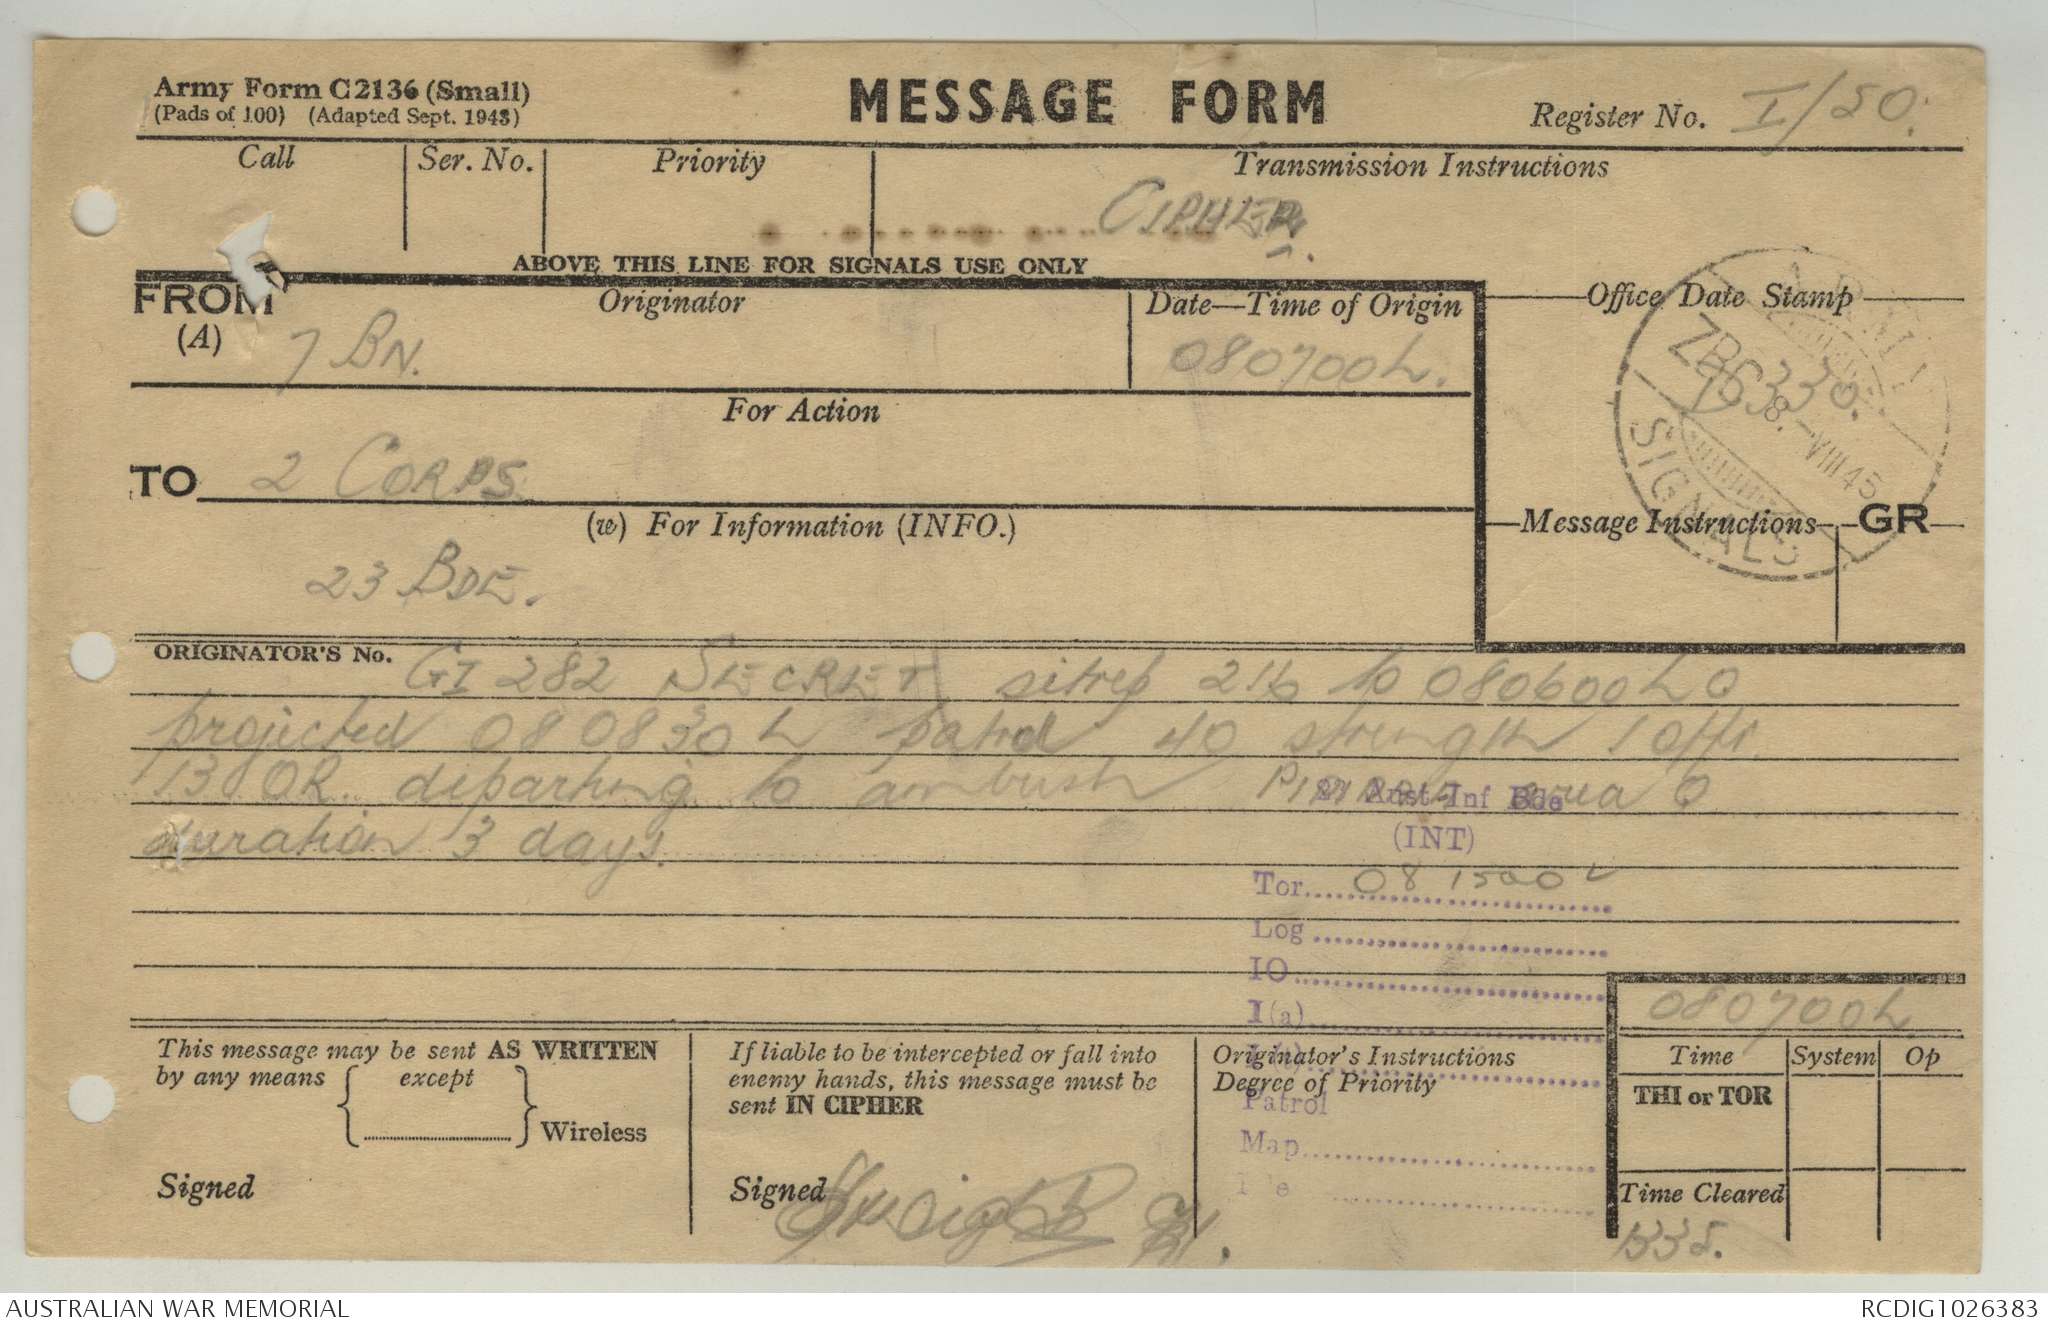 Army Form C2136 (Small)
(Pads of 100) (Adapted Sept. 1943)
MESSAGE FORM
Register No. I/50.
Call
Ser. No.
Priority
Transmission Instructions
CIPHER.
ABOVE THIS LINE FOR SIGNALS USE ONLY
FROM
(A)
Originator
7 BN.
Date—Time of Origin
080700L.
Office Date Stamp
ARMY
ZBC330.
8–VIII 45
SIGNALS
For Action
TO 2 CORPS
(w) For Information (INFO.)
23 BDE.
Message Instructions
GR
ORIGINATOR'S No.
GI 282 SECRET sitrep 216 to 080600L O
projected 080830L patrol 40 strength 1 offr.
13 OR. departing to ambush area O
duration 3 days.
Aust Inf Bde
(INT)
Tor 08 1500 L
Log
IO
I(a)
Patrol
Map
080700L
This message may be sent AS WRITTEN
by any means except
Wireless
Signed
If liable to be intercepted or fall into
enemy hands, this message must be
sent IN CIPHER
Signed
Originator's Instructions
Degree of Priority
Time
System
Op
THI or TOR
Time Cleared
1335.
AUSTRALIAN WAR MEMORIAL
RCDIG1026383